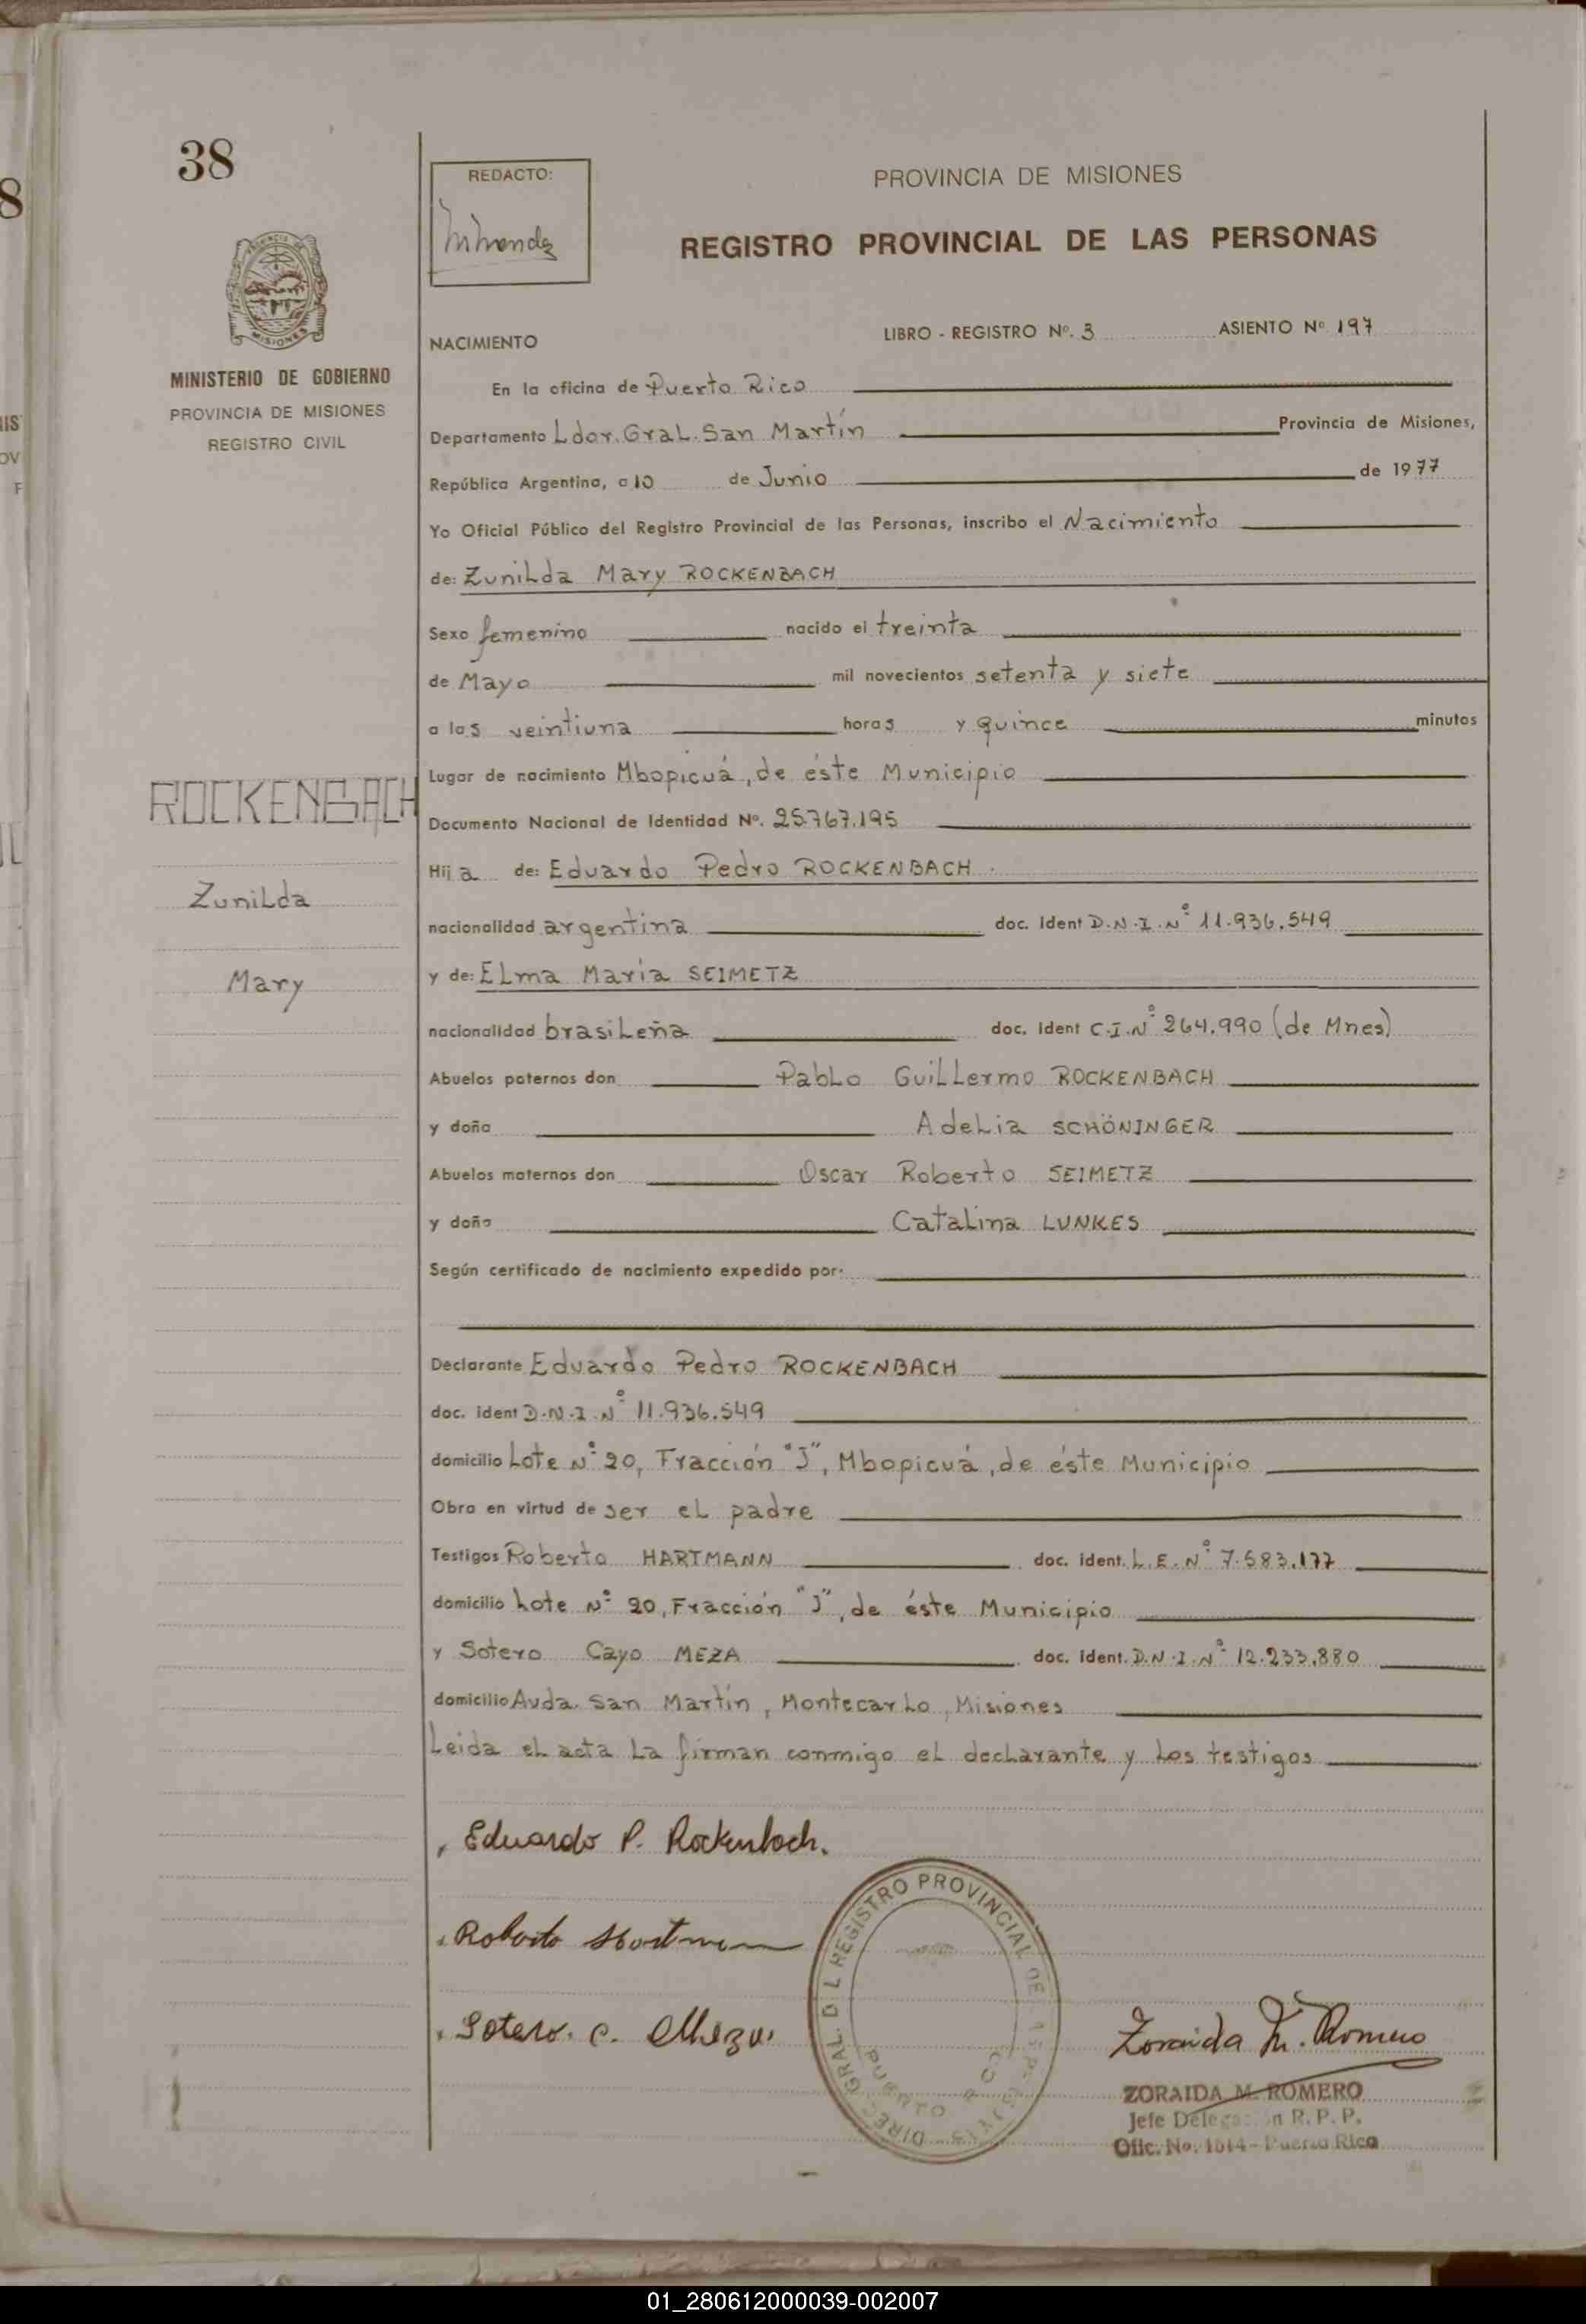 38
MINISTERIO DE GOBIERNO
PROVINCIA DE MISIONES
REGISTRO CIVIL
ROCKENBACH
Zunilda
Mary
REDACTO:
PROVINCIA DE MISIONES
REGISTRO PROVINCIAL DE LAS PERSONAS
NACIMIENTO LIBRO - REGISTRO Nº. 3 ASIENTO Nº 197
En la oficina de Puerto Rico
Departamento Ldor. Gral. San Martín Provincia de Misiones,
República Argentina, a 10 de Junio de 1977
Yo Oficial Público del Registro Provincial de las Personas, inscribo el Nacimiento
de: Zunilda Mary ROCKENBACH
Sexo femenino nacido el treinta
de Mayo mil novecientos setenta y siete
a las veintiuna horas y quince minutos
Lugar de nacimiento Mbopicuá, de éste Municipio
Documento Nacional de Identidad Nº. 25.767.195
Hija de: Eduardo Pedro ROCKENBACH.
nacionalidad argentina doc. ident D.N.I. Nº 11.936.549
y de: Elma María SEIMETZ
nacionalidad brasileña doc. ident C.I. Nº 264.990 (de Mnes)
Abuelos paternos don Pablo Guillermo ROCKENBACH
y doña Adelia SCHÖNINGER
Abuelos maternos don Oscar Roberto SEIMETZ
y doña Catalina LUNKES
Según certificado de nacimiento expedido por:
Declarante Eduardo Pedro ROCKENBACH
doc. ident D.N.I. Nº 11.936.549
domicilio Lote Nº 20, Fracción "J", Mbopicuá, de éste Municipio
Obra en virtud de ser el padre
Testigos Roberto HARTMANN doc. ident. L.E. Nº 7.583.177
domicilio Lote Nº 20, Fracción "J", de éste Municipio
y Sotero Cayo MEZA doc. ident. D.N.I. Nº 12.233.880
domicilio Avda. San Martín, Montecarlo, Misiones
Leida el acta la firman conmigo el declarante y los testigos
Eduardo P. Rockenbach.
Roberto Hartmann
Sotero. C. Meza
Zoraida M. Romero
ZORAIDA M. ROMERO
Jefe Delegación R. P. P.
Ofic. No. 1614 - Puerto Rico
01_280612000039-002007